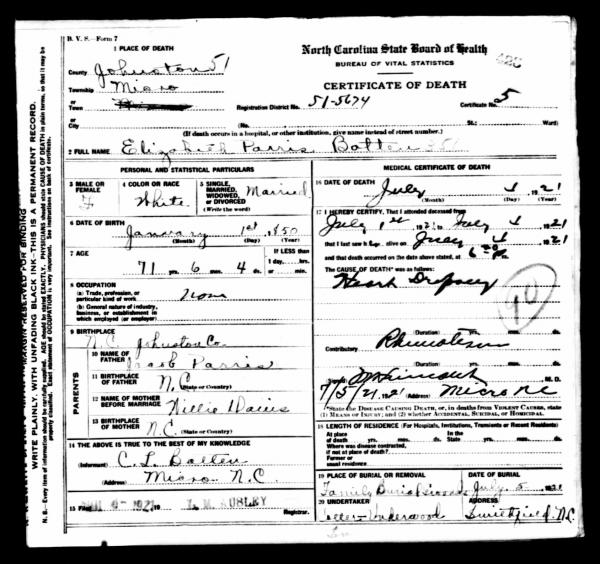 B. V. S.—Form 7
1 PLACE OF DEATH
North Carolina State Board of Health
BUREAU OF VITAL STATISTICS
CERTIFICATE OF DEATH
County Johnston 51
Township Micro
or
Town
or
City
Registration District No. 51-5674 Certificate No. 5
(No. St.; Ward)
(If death occurs in a hospital, or other institution, give name instead of street number.)
2 FULL NAME Elizabeth Parris Batten
PERSONAL AND STATISTICAL PARTICULARS
3 MALE OR FEMALE F
4 COLOR OR RACE White
5 SINGLE, MARRIED, WIDOWED, or DIVORCED (Write the word) Married
6 DATE OF BIRTH
January 1st 1850
(Month) (Day) (Year)
7 AGE
71 yrs. 6 mos. 4 ds.
If LESS than
1 day, hrs.
or min.
8 OCCUPATION
(a) Trade, profession, or
particular kind of work
(b) General nature of industry,
business, or establishment in
which employed (or employer)
9 BIRTHPLACE
N.C. Johnston Co.
PARENTS
10 NAME OF FATHER Jacob Parris
11 BIRTHPLACE OF FATHER N.C.
(State or Country)
12 NAME OF MOTHER BEFORE MARRIAGE Millie Davis
13 BIRTHPLACE OF MOTHER N.C.
(State or Country)
14 THE ABOVE IS TRUE TO THE BEST OF MY KNOWLEDGE
(Informant) C. L. Batten
(Address) Micro N.C.
15 Filed
Registrar.
MEDICAL CERTIFICATE OF DEATH
16 DATE OF DEATH
July 4 1921
(Month) (Day) (Year)
17 I HEREBY CERTIFY, That I attended deceased from
July 1st 1921, to July 4, 1921
that I last saw h er alive on July 4, 1921
and that death occurred on the date above stated, at 6
The CAUSE OF DEATH* was as follows:
Heart Dropsey
90
(Duration) yrs. mos. ds.
Contributory Rhumatism
(Duration) yrs. mos. ds.
Signed M. D.
7/5/21, 1921 (Address) Micro NC
*State the DISEASE CAUSING DEATH, or, in deaths from VIOLENT CAUSES, state
(1) MEANS OF INJURY; and (2) whether ACCIDENTAL, SUICIDAL, or HOMICIDAL.
18 LENGTH OF RESIDENCE (For Hospitals, Institutions, Transients or Recent Residents)
At place of death yrs. mos. ds. In the State yrs. mos. ds.
Where was disease contracted,
if not at place of death?
Former or
usual residence
19 PLACE OF BURIAL OR REMOVAL DATE OF BURIAL
Family Burial Ground July 5 1921
20 UNDERTAKER ADDRESS
Underwood Smithfield N.C.
MARGIN RESERVED FOR BINDING
WRITE PLAINLY, WITH UNFADING BLACK INK—THIS IS A PERMANENT RECORD.
N. B.—Every item of information should be carefully supplied. AGE should be stated EXACTLY. PHYSICIANS should state CAUSE OF DEATH in plain terms, so that it may be
properly classified. Exact statement of OCCUPATION is very important. See instructions on back of certificate.